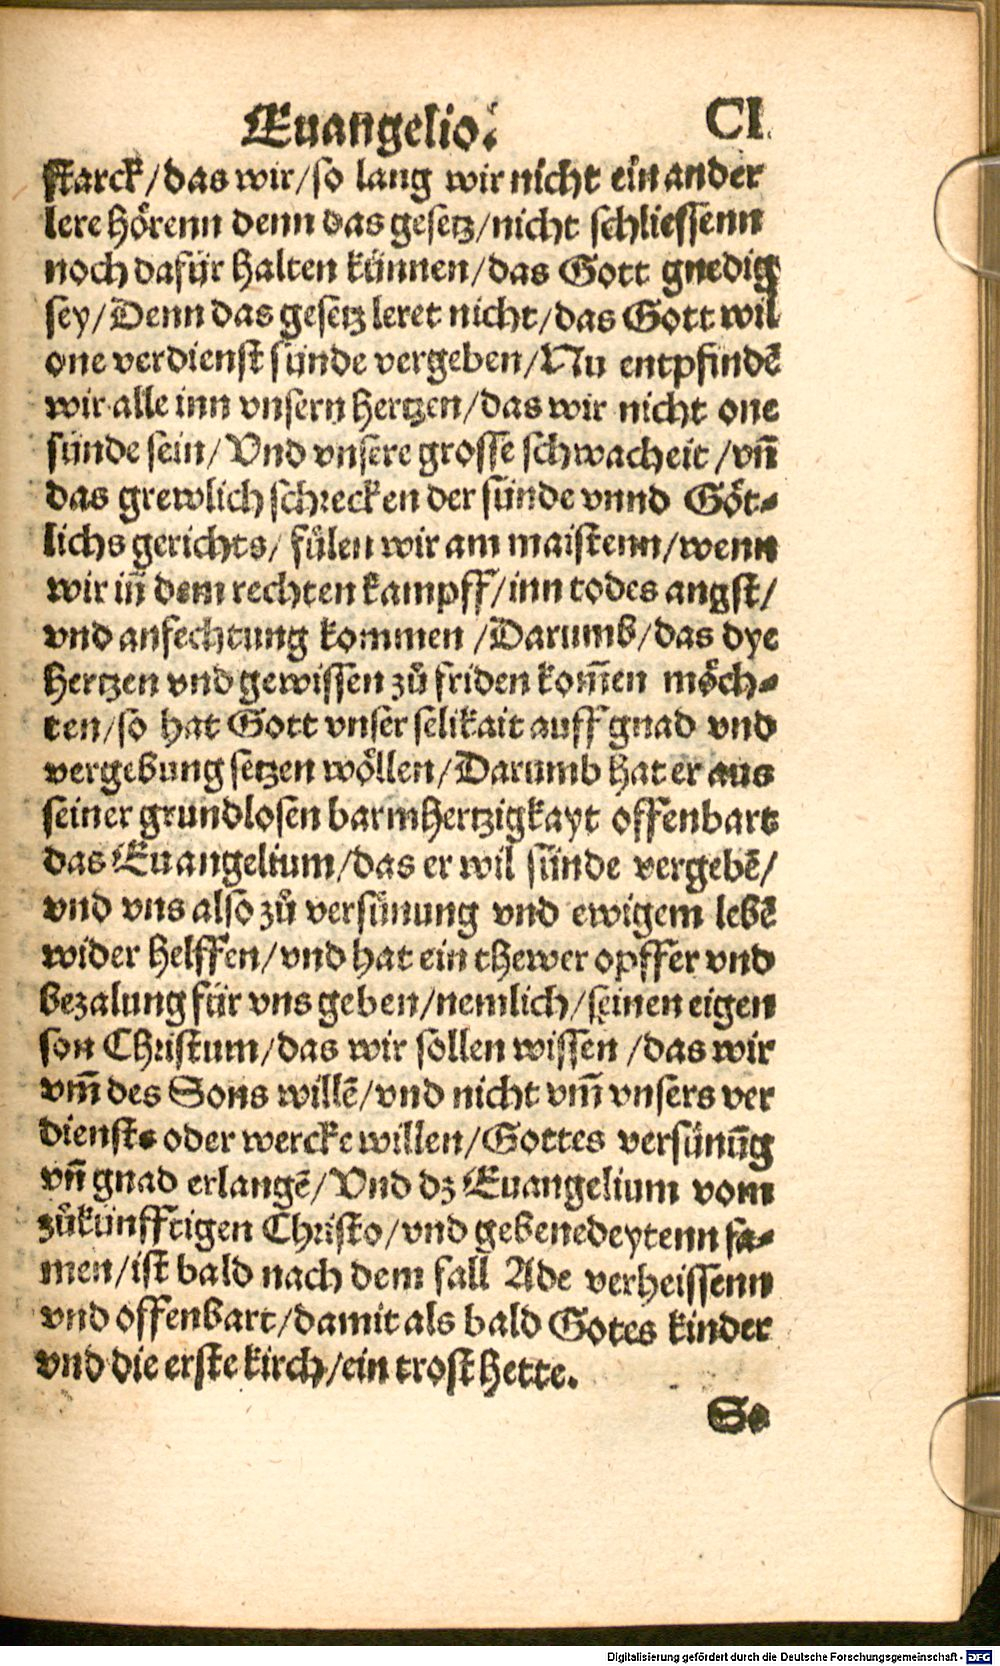 Euangelio. CI.
starck/das wir/so lang wir nicht ein ander
lere hörenn denn das gesetz/nicht schliessenn
noch dafür halten künnen/das Gott gnedig
sey/Denn das gesetz leret nicht/das Gott wil
one verdienst sünde vergeben/Nu entpfindẽ
wir alle inn vnsern hertzen/das wir nicht one
sünde sein/Vnd vnsere grosse schwacheit/vñ
das grewlich schrecken der sünde vnnd Göt-
lichs gerichts/fülen wir am maistenn/wenn
wir iñ dem rechten kampff/inn todes angst/
vnd anfechtung kommen/Darumb/das dye
hertzen vnd gewissen zů friden kom̃en möch-
ten/so hat Gott vnser selikait auff gnad vnd
vergebung setzen wöllen/Darumb hat er aus
seiner grundlosen barmhertzigkayt offenbart
das Euangelium/das er wil sünde vergebẽ/
vnd vns also zů versünung vnd ewigem lebẽ
wider helffen/vnd hat ein thewer opffer vnd
bezalung für vns geben/nemlich/seinen eigen
son Christum/das wir sollen wissen/das wir
vm̃ des Sons willẽ/vnd nicht vm̃ vnsers ver
diensts oder wercke willen/Gottes versünũg
vñ gnad erlangẽ/Vnd dz Euangelium vom
zůkünfftigen Christo/vnd gebenedeytenn sa-
men/ist bald nach dem fall Ade verheissenn
vnd offenbart/damit als bald Gotes kinder
vnd die erste kirch/ein trost hette.
So
Digitalisierung gefördert durch die Deutsche Forschungsgemeinschaft - DFG